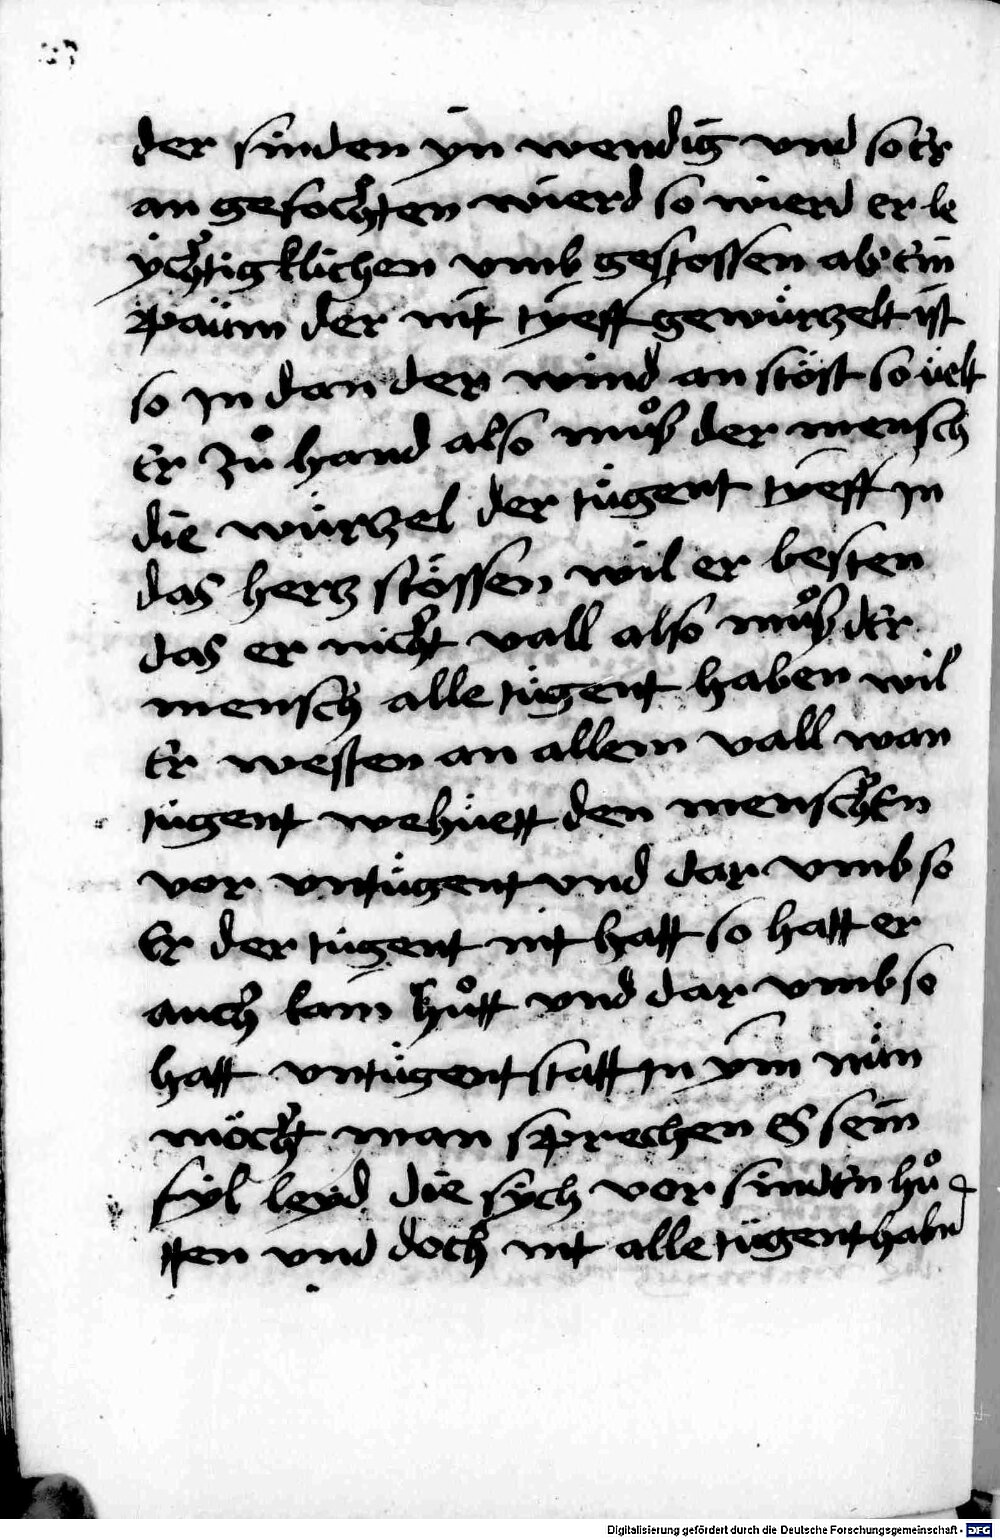 der sinden yn wendig vnd so er
an gefochten wierd so wierd er le
ychtigklichen vmb gestossen als ein
paum der nit tyeff gewürzelt ist
so in dan der wind an stöst so velt
er zů hand also můß der mensch
die würzel der tugent tyeff in
das herz stössen wil er besten
das er nicht vall also můß der
mensch alle tugent haben wil
er westen an allem vall wan
tugent wehüett den menschen
vor vntugent vnd dar vmb so
er der tugent nit hatt so hatt er
auch kain hůtt vnd dar vmb so
hatt vntugent statt in ym nün
möcht man sprechen es sein
fyl leyd die sych vor sinden hů
tten vnd doch nit alle tugent habn
Digitalisierung gefördert durch die Deutsche Forschungsgemeinschaft - DFG